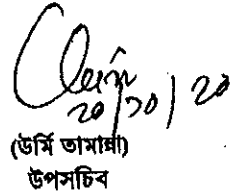 20/10/20
(উর্মি তামান্না)
উপসচিব